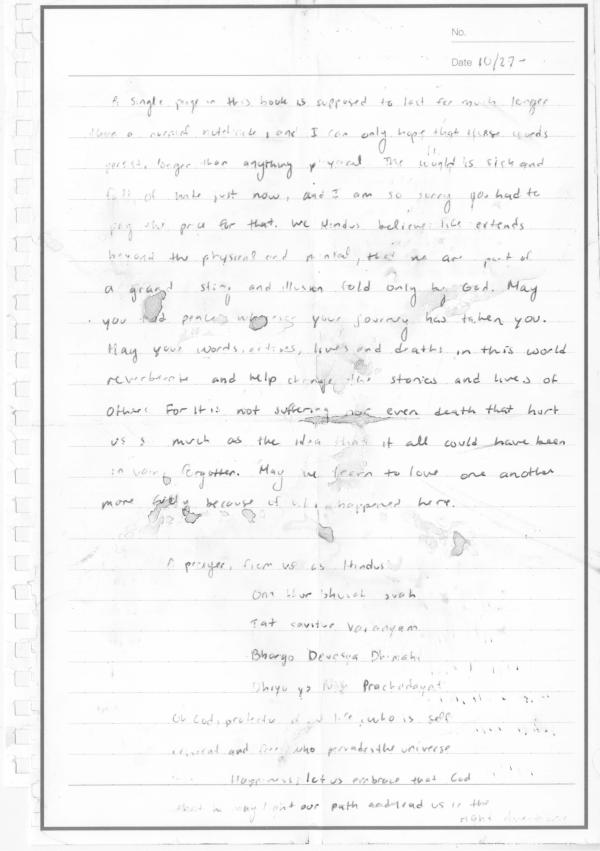 No.
Date 10/27-
A single page in this book is supposed to last for much longer
than a normal notebook, and I can only hope that these words
persist longer than anything physical The world is sick and
full of hate just now, and I am so sorry you had to
pay the price for that. We Hindus believe life extends
beyond the physical and mental, that we are part of
a grand story and illusion told only by God. May
you find peace wherever your journey has taken you.
May your words, actives, lives and deaths in this world
reverberate and help change the stories and lives of
others For it is not suffering nor even death that hurt
us as much as the idea that it all could have been
in vain, forgotten. May we learn to love one another
more fully because of what happened here.
A prayer, from us as Hindus
Om bhur bhuvah svah
Tat savitur Varanyam
Bhargo Devasya Dhimahi
Dhiyo yo Prachodayat
Oh God, protector of life, who is self
and free, who pervades the universe
Happiness, let us embrace that God
that he may light our path and lead us in the
right